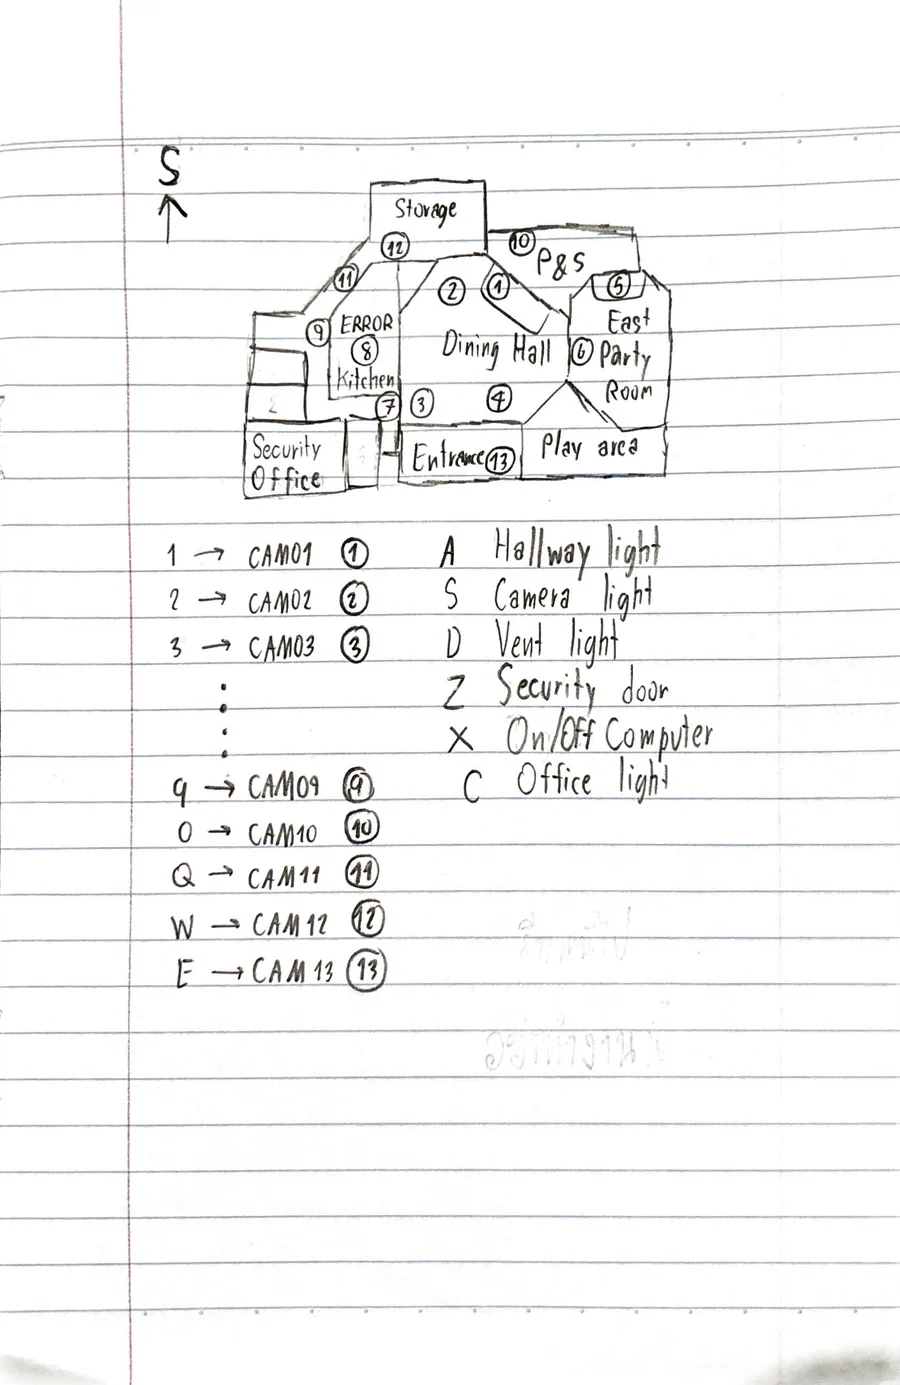 S
↑
Storage
12
10
P&S
11
2
1
5
9
ERROR
East
8
Dining Hall
6
Party
Kitchen
Room
2
7
3
4
Security
Office
Entrance 13
Play area
1 → CAM01 1
A Hallway light
2 → CAM02 2
S Camera light
3 → CAM03 3
D Vent light
Z Security door
X On/Off Computer
9 → CAM09 9
C Office light
0 → CAM10 10
Q → CAM11 11
W → CAM12 12
E → CAM13 13